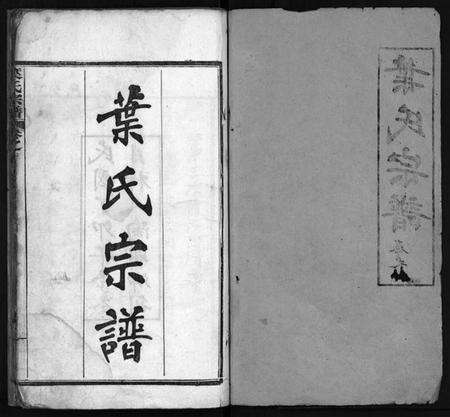 葉氏宗譜
葉氏宗譜